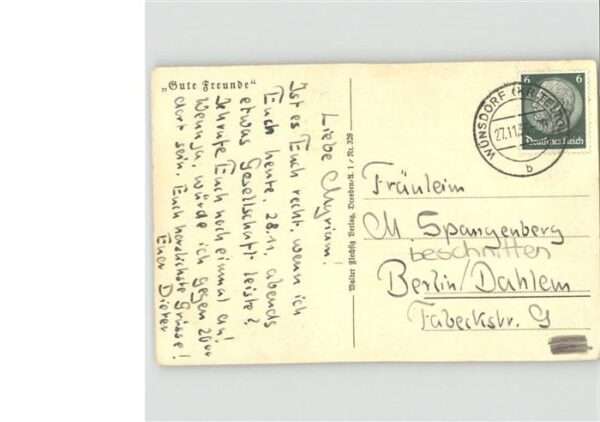 „Gute Freunde“
Liebe Myriam!
Ist es Euch recht, wenn ich
Euch heute, 28.11, abends
etwas Gesellschaft leiste?
Ich rufe Euch noch einmal an!
Wenn ja, würde ich gegen 20ºº
dort sein. Euch herzlichste Grüsse!
Euer Dieter
Walter Flechsig Verlag, Dresden-A. 1 / Nr. 320
6 6
Deutsches Reich
WÜNSDORF (KR. TELTOW)
27.11
b
Fräulein
M. Spangenberg
beschnitten
Berlin/Dahlem
Fabeckstr. 9